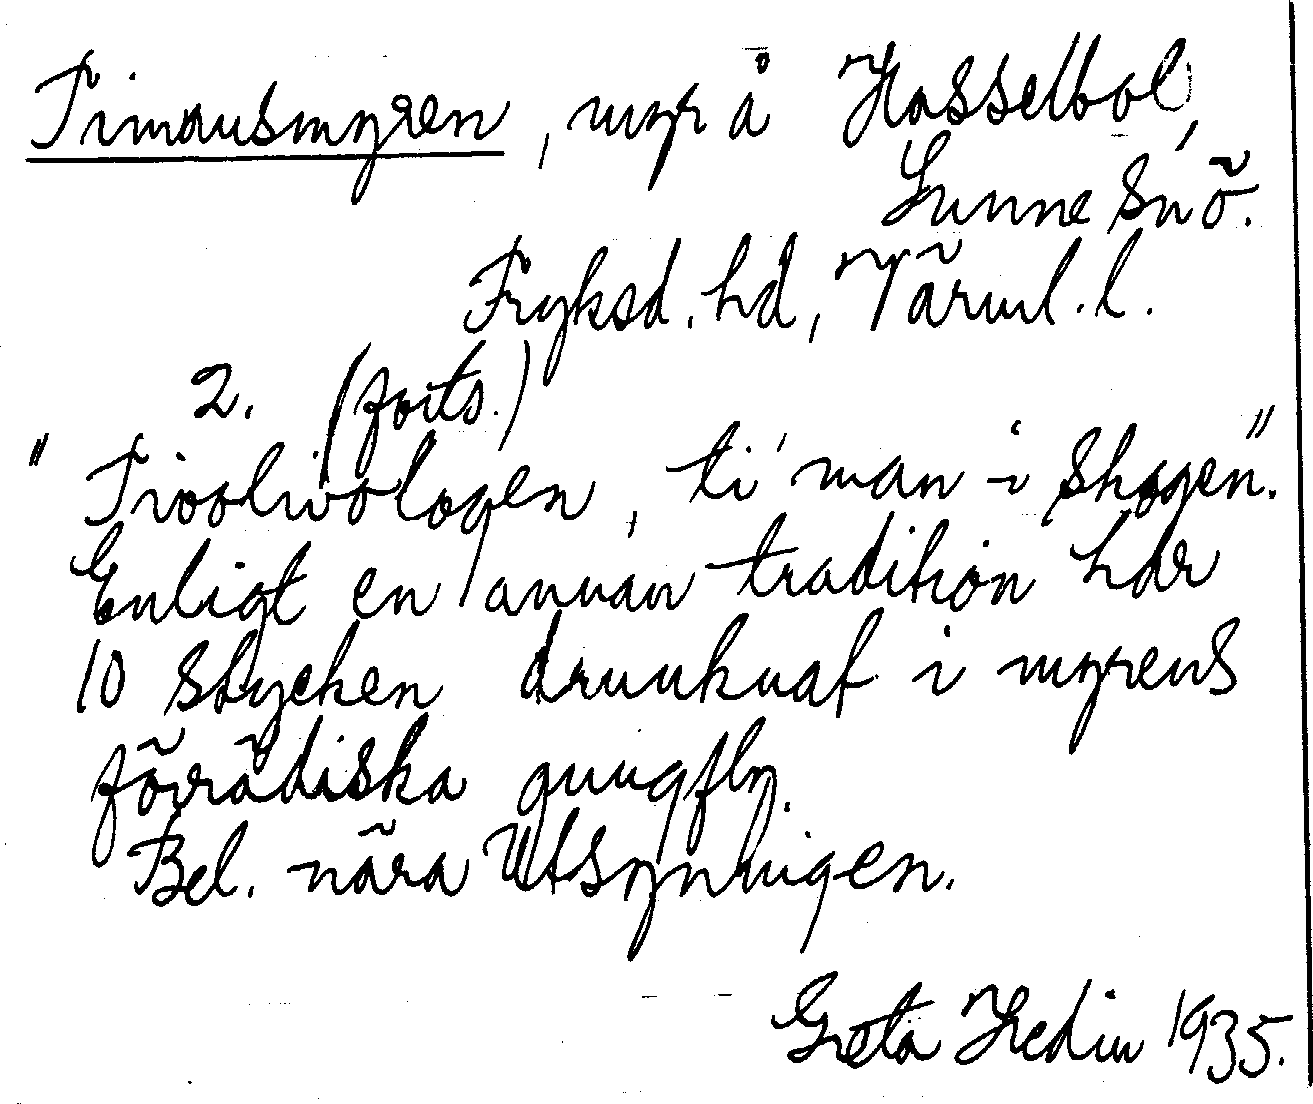 Timansmyren, myr å Hasselbol,
Sunne Snö.
Fryksd. hd, Värml. l.
2. (forts.)
" , ti' man i skogen."
Enligt en annan tradition har
10 stycken drunknat i myrens
förrädiska gungfly.
Bel. nära Utsynhöigen.
Greta Hedin 1935.